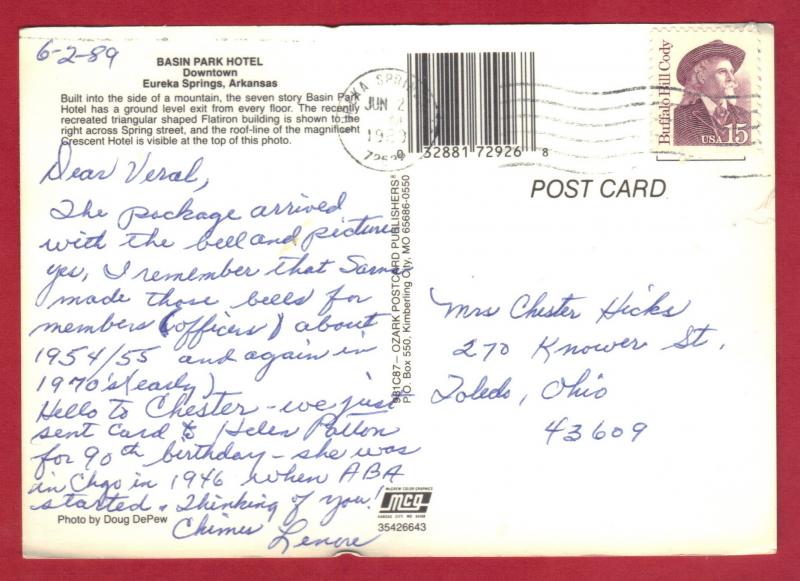 6-2-89
BASIN PARK HOTEL
Downtown
Eureka Springs, Arkansas
Built into the side of a mountain, the seven story Basin Park
Hotel has a ground level exit from every floor. The recently
recreated triangular shaped Flatiron building is shown to the
right across Spring street, and the roof-line of the magnificent
Crescent Hotel is visible at the top of this photo.
JUN 2
0 32881 72926 8
Buffalo Bill Cody
USA 15
POST CARD
Dear Veral,
The package arrived
with the bell and picture
yes, I remember that Sam
made those bells for
members (officers) about
1954/55 and again in
1970's (early)
Hello to Chester - we just
sent card to Helen Patton
for 90th birthday - she was
in Chgo in 1946 when ABA
started. Thinking of you!
Chimes
Lenore
Photo by Doug DePew
981C87 – OZARK POSTCARD PUBLISHERS®
P.O. Box 550, Kimberling City, MO 65686-0550
Mrs Chester Hicks
270 Knower St.
Toledo, Ohio
43609
mcg
35426643